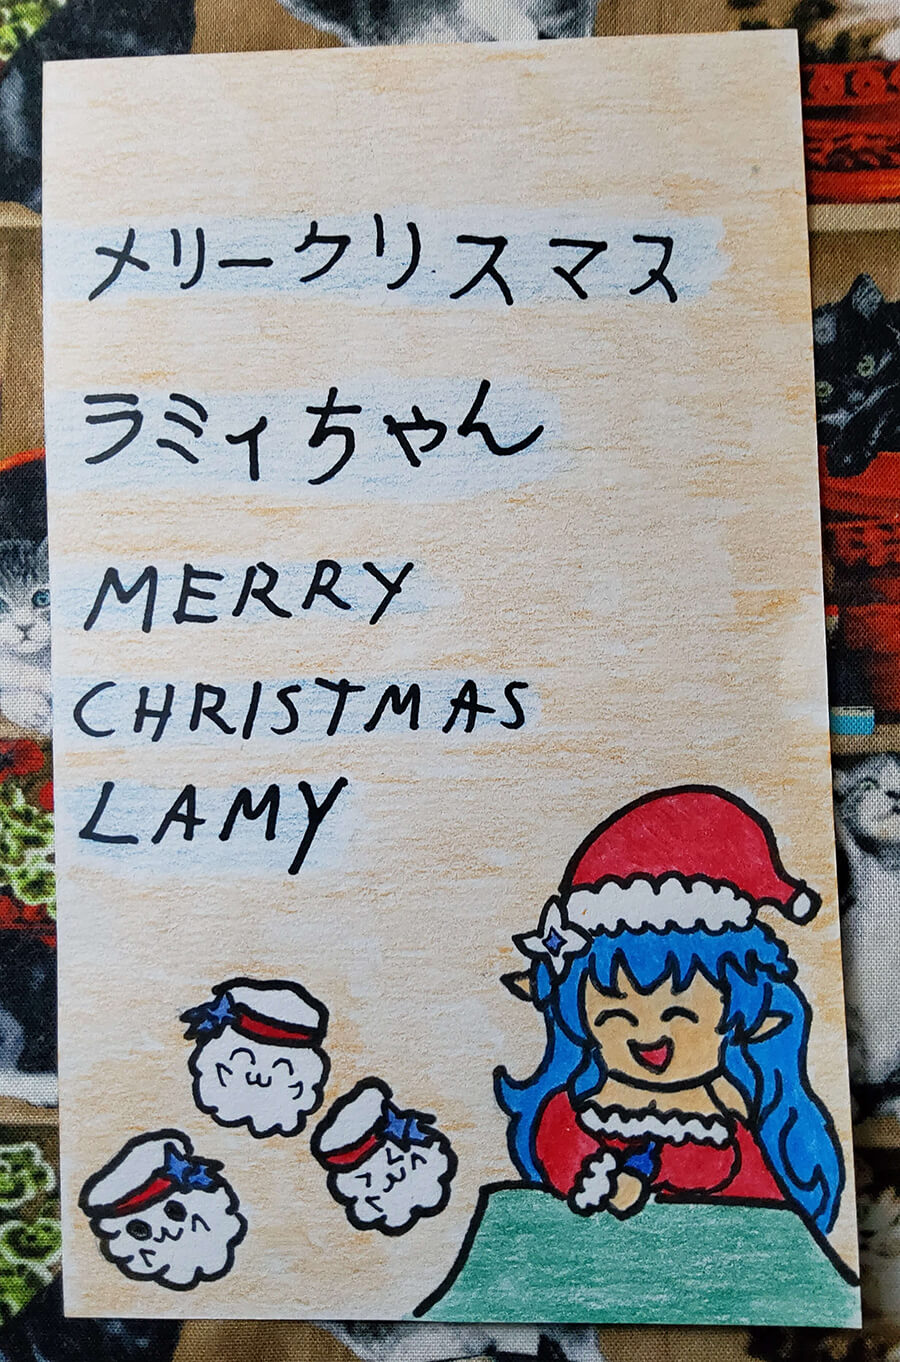 メリークリスマス
ラミィちゃん
MERRY
CHRISTMAS
LAMY